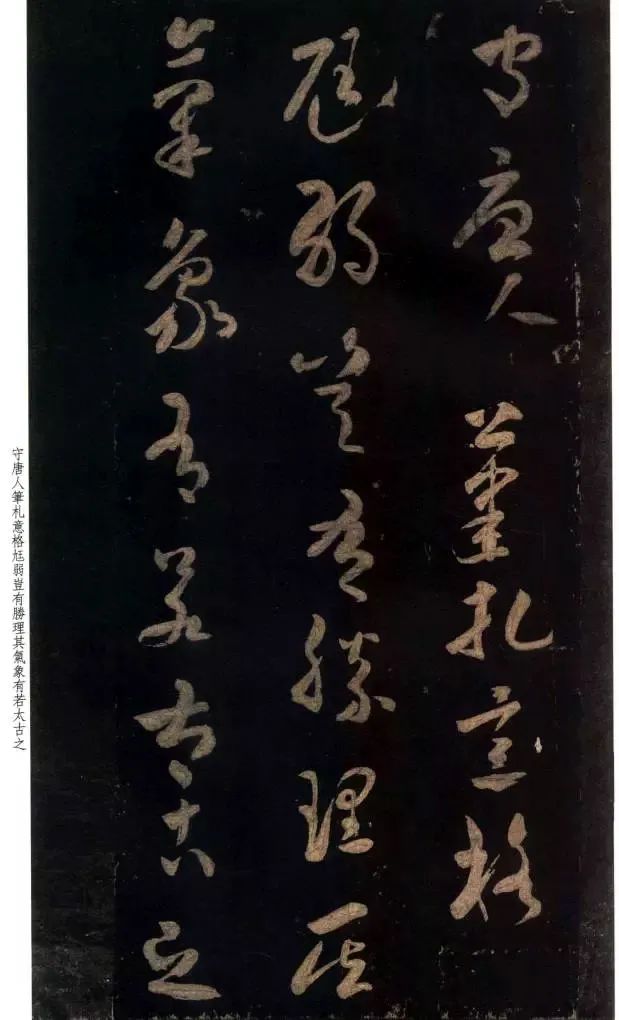 守唐人筆札意格
尪弱豈有勝理其
氣象有若太古之
守唐人筆札意格尪弱豈有勝理其氣象有若太古之